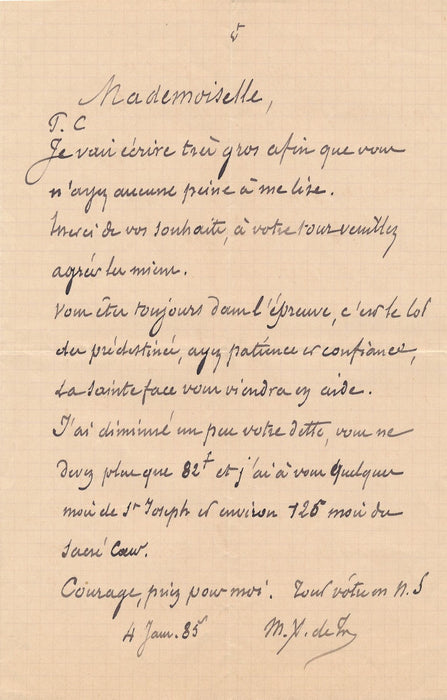 Mademoiselle,
T. C
Je vais écrire très gros afin que vous
n'ayez aucune peine à me lire.
Merci de vos souhaits, à votre tour veuillez
agréer les miens.
Vous êtes toujours dans l'épreuve, c'est le lot
des prédestinés, ayez patience et confiance,
La sainte face vous viendra en aide.
J'ai diminué un peu votre dette, vous ne
devez plus que 82 et j'ai à vous quelques
mois de St Joseph et environ 125 mois du
sacré Cœur.
Courage, priez pour moi. Tout vôtre en N. S
4 Janv. 85